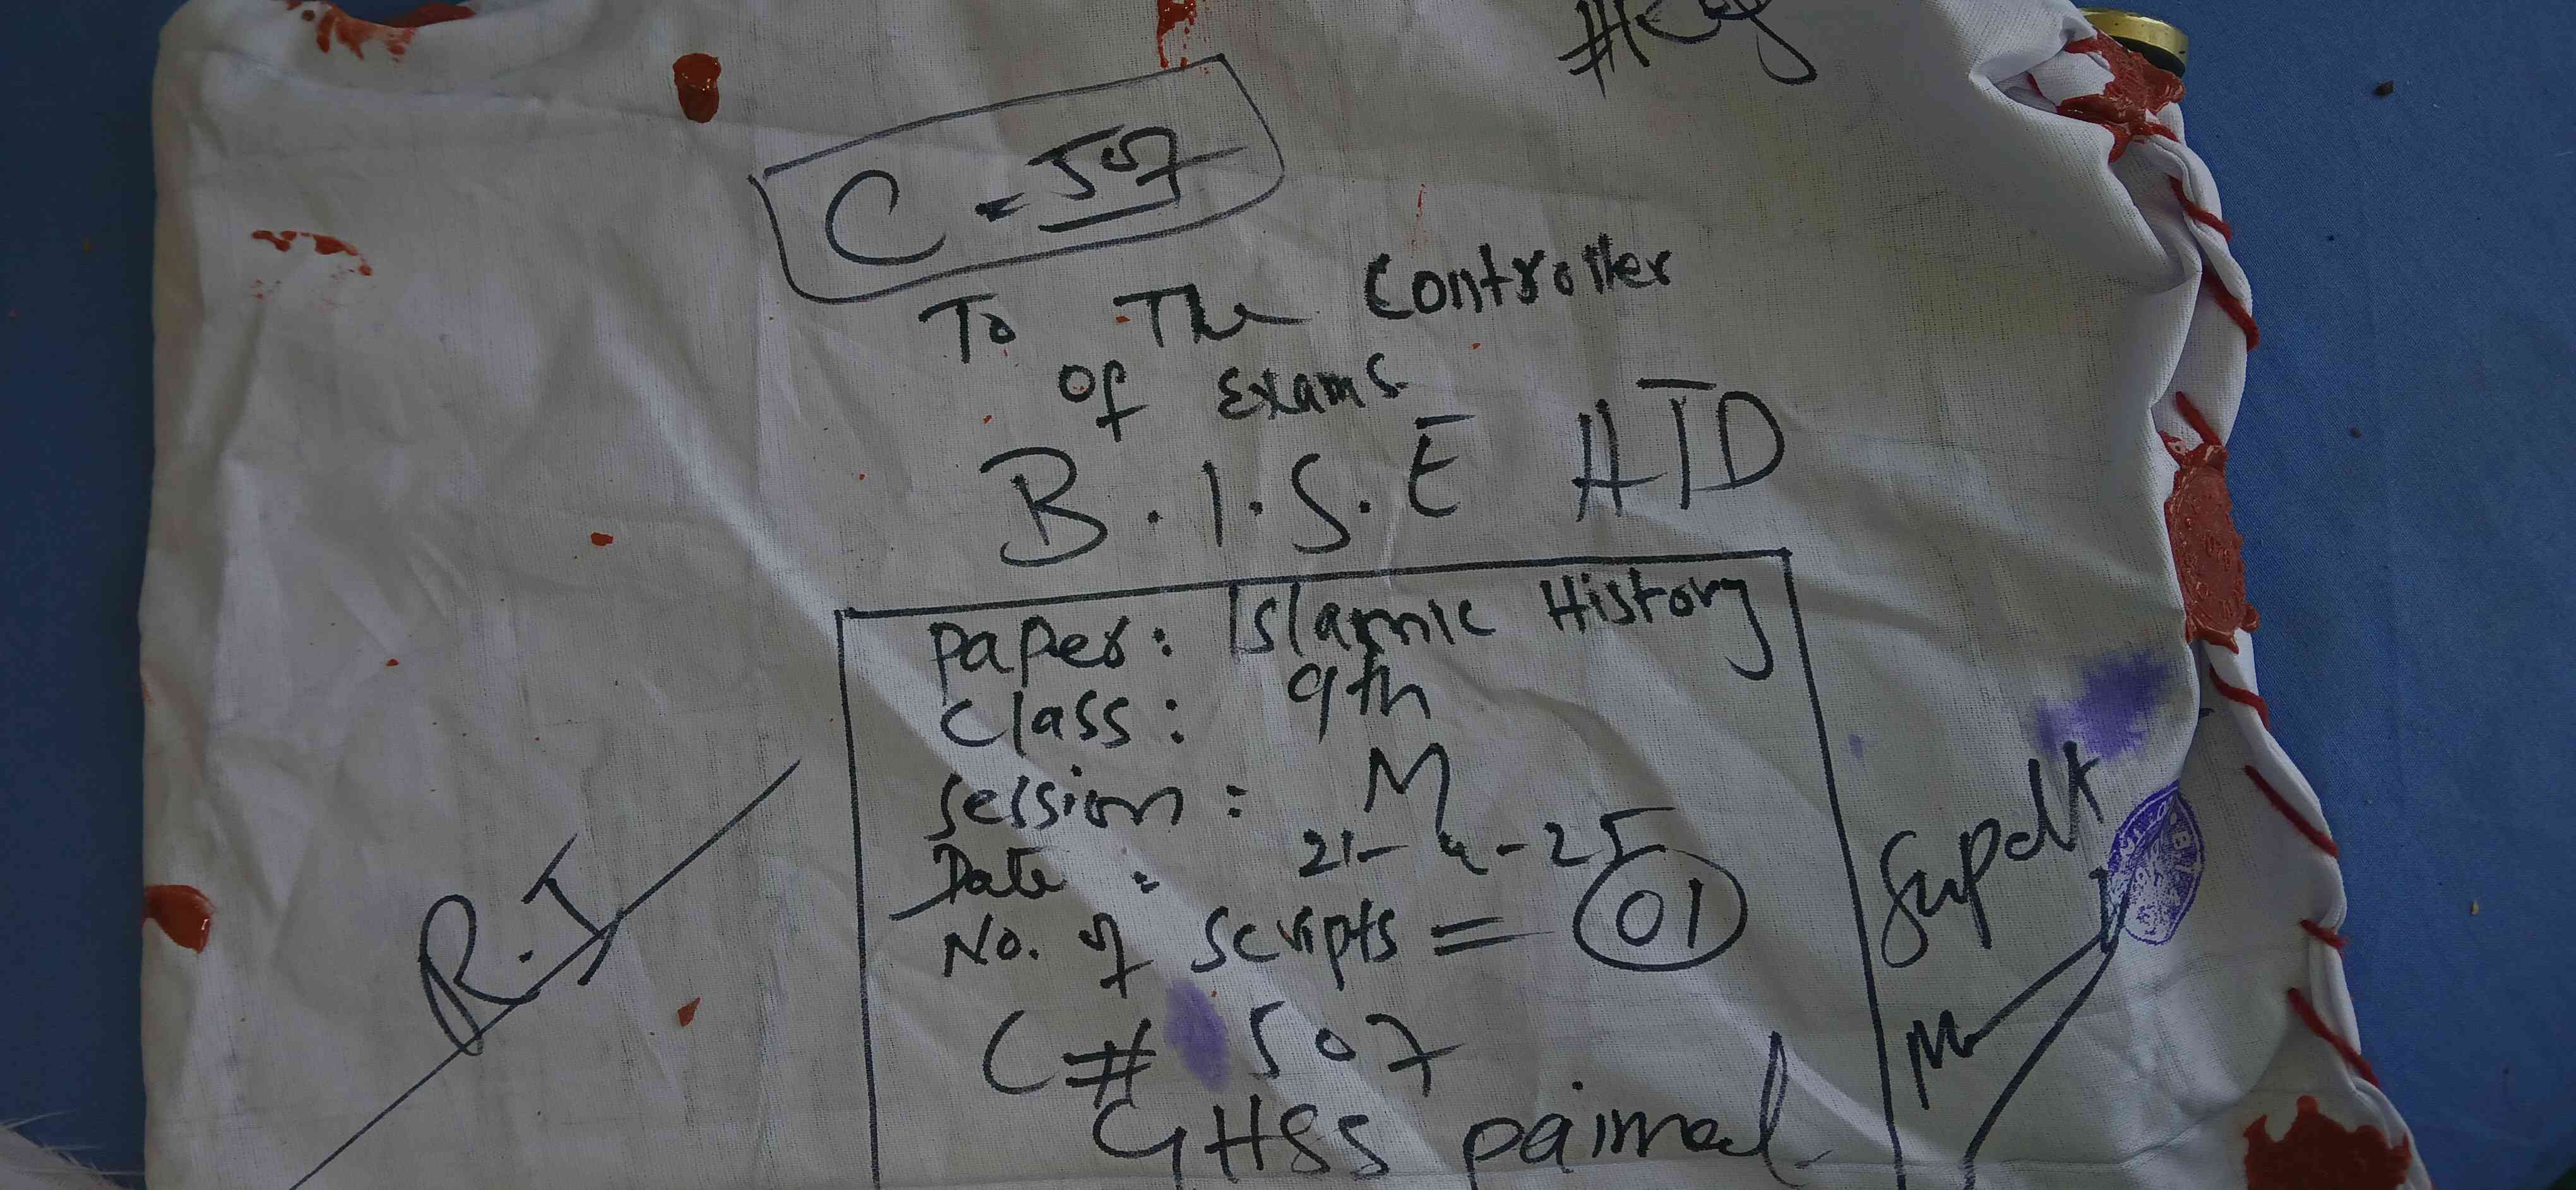 C - 507
To The Controller
of Exams
B.I.S.E ATD
Paper: Islamic History
Class: 9th
Session: M
Date: 21-4-25
No. of Scripts = 01
C# 507
GHSS paimal
R.I
Supdt